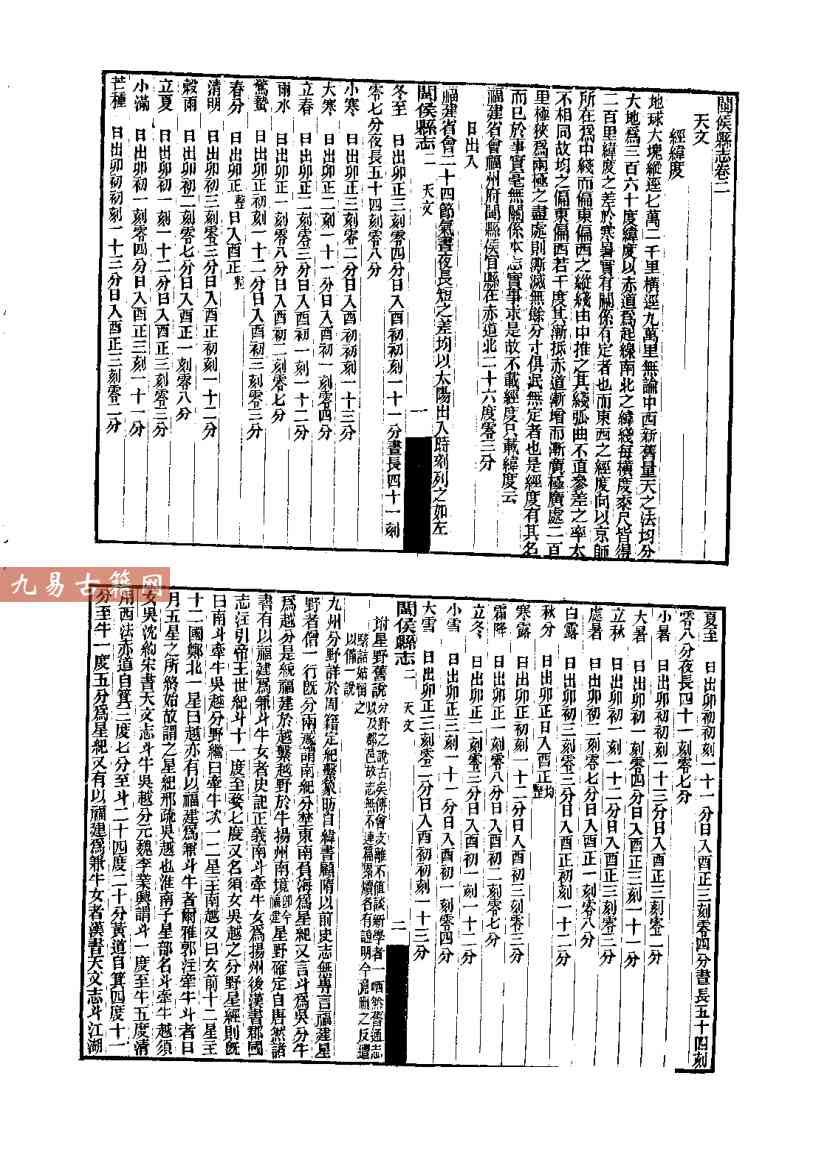 閩侯縣志卷二
天文
經緯度
地球大塊縱逕七萬二千里橫逕九萬里無論中西新舊量天之法均分
大地爲三百六十度緯度以赤道爲起線南北之緯綫每橫度來尺皆得
二百里緯度之差於寒暑實有關係有定者也而東西之經度向以京師
所在爲中綫而偏東偏西之縱綫由中推之其綫弧曲不直參差之率太
不相同故均之偏東偏西若干度其漸抵赤道漸增而漸廣極廣處二百
里極狹爲兩極之盡處則漸滅無餘分寸俱泯無定者也是經度有其名
而已於事實毫無關係本志實事求是故不載經度只載緯度云
福建省會福州府閩縣侯官縣在赤道北二十六度零三分
日出入
福建省會二十四節氣晝夜長短之差均以太陽出入時刻列之如左
閩侯縣志 二 天文 一
冬至 日出卯正三刻零四分日入酉初初刻一十一分晝長四十一刻
零七分夜長五十四刻零八分
小寒 日出卯正三刻零二分日入酉初初刻一十三分
大寒 日出卯正二刻一十一分日入酉初一刻零四分
立春 日出卯正二刻零三分日入酉初一刻一十二分
雨水 日出卯正一刻零八分日入酉初二刻零七分
驚蟄 日出卯正初刻一十二分日入酉初三刻零三分
春分 日出卯正整日入酉正整
清明 日出卯初三刻零三分日入酉正初刻一十二分
穀雨 日出卯初二刻零七分日入酉正一刻零八分
立夏 日出卯初一刻一十二分日入酉正二刻零三分
小滿 日出卯初一刻零四分日入酉正二刻一十一分
芒種 日出卯初初刻一十三分日入酉正三刻零二分
夏至 日出卯初初刻一十一分日入酉正三刻零四分晝長五十四刻
零八分夜長四十一刻零七分
小暑 日出卯初初刻一十三分日入酉正三刻零二分
大暑 日出卯初一刻零四分日入酉正二刻一十一分
立秋 日出卯初一刻一十二分日入酉正二刻零三分
處暑 日出卯初二刻零七分日入酉正一刻零八分
白露 日出卯初三刻零三分日入酉正初刻一十二分
秋分 日出卯正日入酉正均整
寒露 日出卯正初刻一十二分日入酉初三刻零三分
霜降 日出卯正一刻零八分日入酉初二刻零七分
立冬 日出卯正二刻零三分日入酉初一刻一十二分
小雪 日出卯正二刻一十一分日入酉初一刻零四分
大雪 日出卯正三刻零二分日入酉初初刻一十三分
閩侯縣志 二 天文 二
附星野舊說 分野之說古矣傅會支離不值談新學者一哂然舊通志
以及郡邑故志無不連篇累牘各有證明今竟廟之反遭
駭詰姑輯之
以備一說
九州分野詳於周籍定紀繫象昉自緯書顧隋以前史志無專言福建星
野者僧一行旣分兩戒謂南紀分埜東南負海爲星紀又言斗爲吳分牛
爲越分是統福建於越繫越野於牛揚州南境卽今福建星野確定自唐然諸
書有以福建爲兼斗牛女者史記正義南斗牽牛女爲揚州後漢書郡國
志注引帝王世紀斗十一度至婺七度又名須女吳越之分野星經則旣
曰南斗牽牛吳越分野繼曰牽牛次一二星主南越又曰女前十二星主
十二國鄭北一星曰越亦有以福建爲兼斗牛者爾雅郭注牽牛斗者日
月五星之所終始故謂之星紀邢疏吳越也淮南子星部名斗牽牛越須
女吳沈約宋書天文志斗牛吳越分元魏李業興謂斗一度至牛五度清
用西法赤道自箕三度七分至斗二十四度二十分黃道自箕四度十一
分至牛一度五分爲星紀又有以福建爲兼牛女者漢書天文志斗江湖
九易古籍网